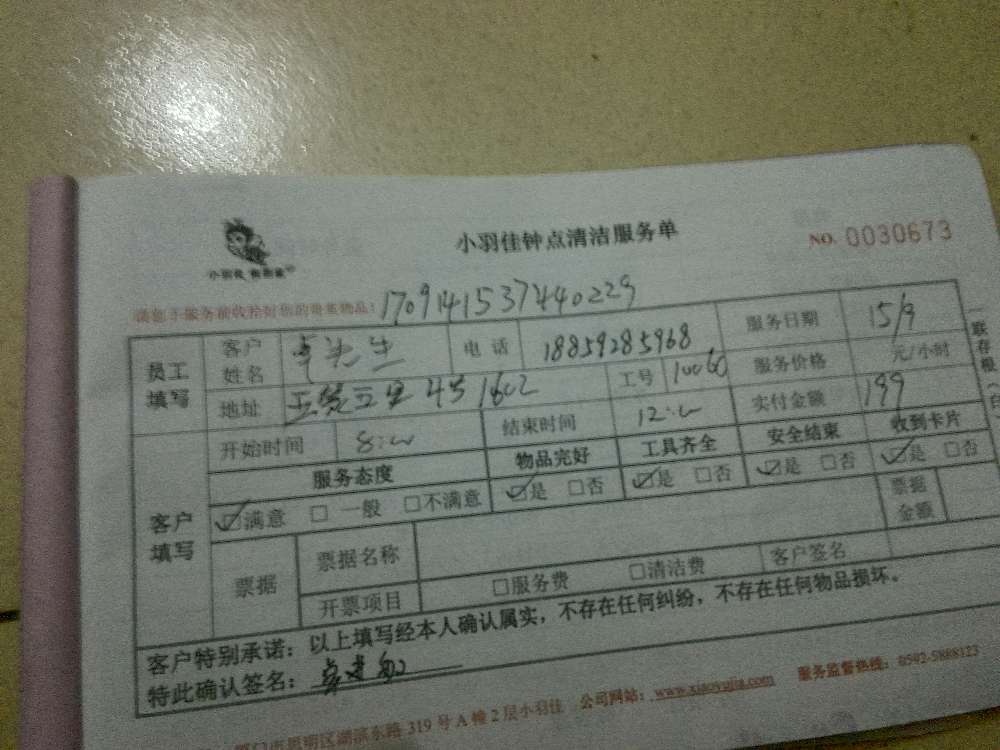 小羽佳钟点清洁服务单
NO. 0030673
小羽佳
请您于服务前收拾好您的贵重物品！ 1709141537440229
员工填写 客户姓名 卓先生 电话 18859285968 服务日期 15/9
地址 4号1602 工号 10060 服务价格 元/小时
实付金额 199
客户填写 开始时间 8:00 结束时间 12:00
服务态度 物品完好 工具齐全 安全结束 收到卡片
☑满意 □一般 □不满意 ☑是 □否 ☑是 □否 ☑是 □否 ☑是 □否
票据 票据名称 票据金额
开票项目 □服务费 □清洁费 客户签名
客户特别承诺：以上填写经本人确认属实，不存在任何纠纷，不存在任何物品损坏。
特此确认签名：
厦门市思明区湖滨东路319号A幢2层小羽佳 公司网站：www.xiaoyujia.com 服务监督热线：0592-5888123
一联存根（白